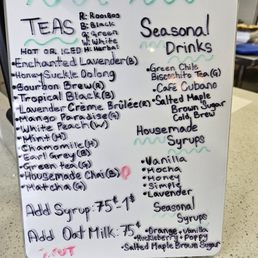 TEAS
R: Rooibos
B: Black
G: Green
W: White
H: Herbal
HOT OR ICED
Enchanted Lavender (B)
Honey Suckle Oolong
Bourbon Brew (R)
Tropical Black (B)
Lavender Crème Brûlée (R)
Mango Paradise (G)
White Peach (W)
Mint (H)
Chamomile (H)
Earl Grey (B)
Green tea (G)
Housemade Chai (B)
Matcha (G)
Add Syrup: 75¢ 1$
Add Oat Milk: 75¢
OUT
Seasonal
Drinks
Green Chile
Biscochito Tea (G)
Café Cubano
Salted Maple
Brown Sugar
Cold Brew
Housemade
Syrups
Vanilla
Mocha
Honey
Simple
Lavender
Seasonal
Syrups
Orange + Vanilla
Huckleberry + Poppy
Salted Maple Brown Sugar